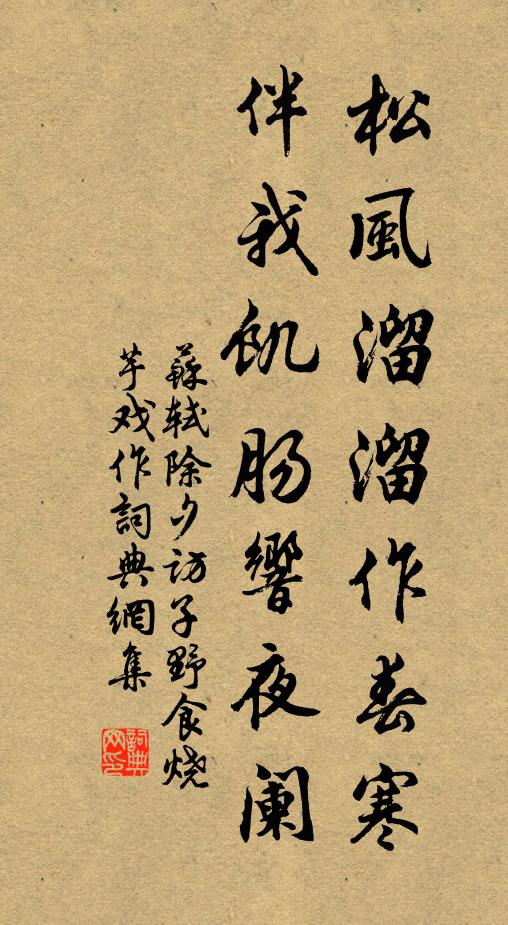 松風溜溜作春寒
伴我飢腸響夜闌
蘇軾除夕訪子野食燒
芋戏作詞典網集
詞典
网